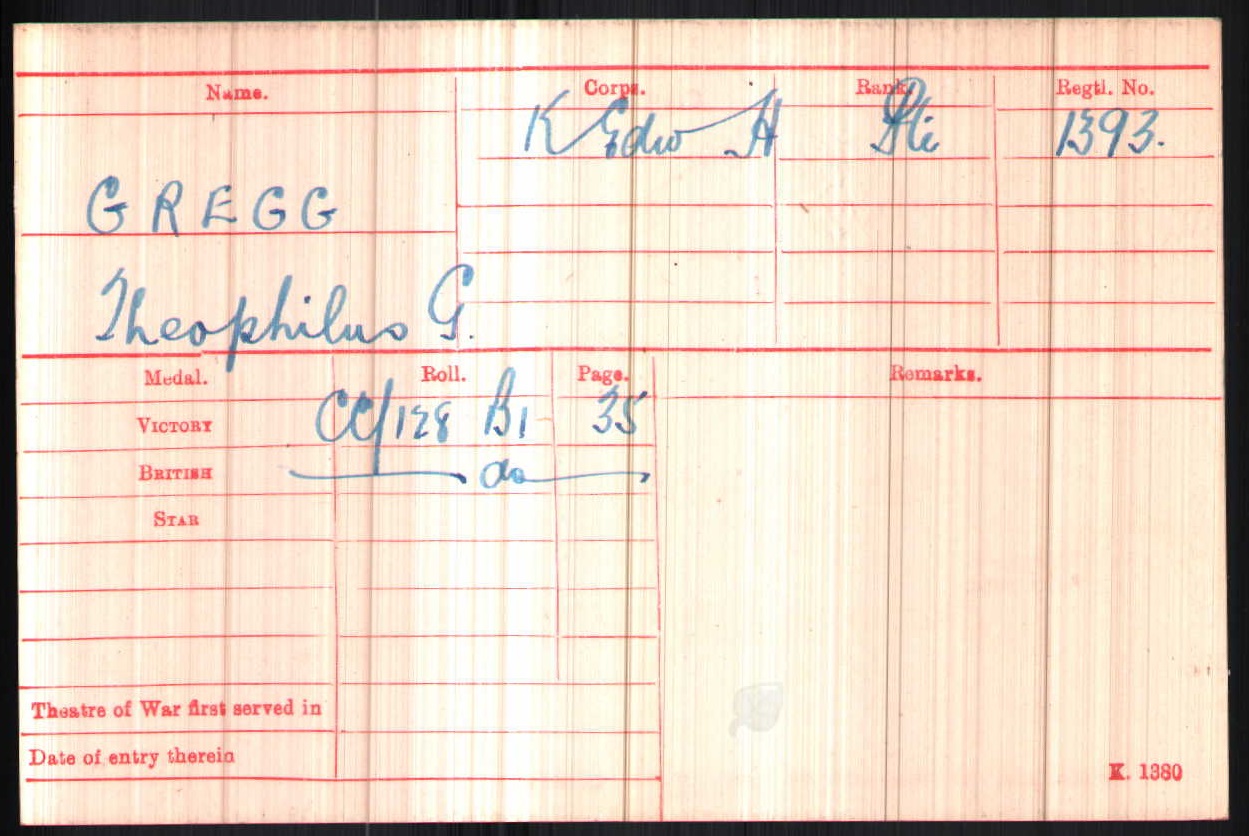 Name. Corps. Rank. Regtl. No.
K Edw H Pte 1393.
GREGG
Theophilus G.
Medal. Roll. Page. Remarks.
VICTORY CC/128 B1 35
BRITISH do
STAR
Theatre of War first served in
Date of entry therein
K. 1380